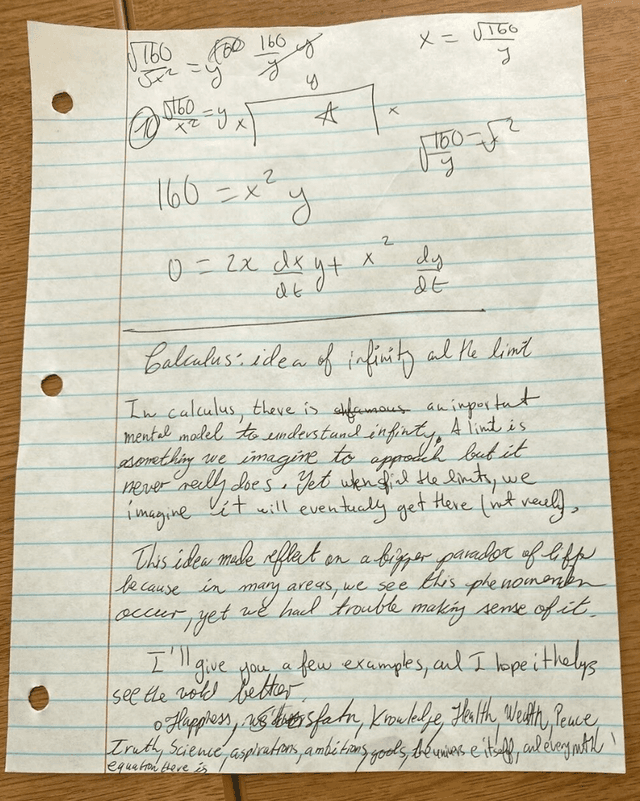 √160/√x² = y 160/y
x = √160/y
y
⑩ √160/x² = y x A x
√160/y = √²
160 = x² y
0 = 2x dx/dt y + x² dy/dt
Calculus: idea of infinity and the limit
In calculus, there is an important
mental model to understand infinty. A limit is
something we imagine to approach but it
never really does. Yet when find the limits, we
imagine it will eventually get there (not really).
This idea made reflect on a bigger paradox of life
because in many areas, we see this phenomenon
occur, yet we had trouble making sense of it.
I'll give you a few examples, and I hope it helps
see the world better.
o Happiness, Knowledge, Health, Wealth, Peace
Truth, Science, aspirations, ambitions, goals, the universe itself, and every math
equation there is